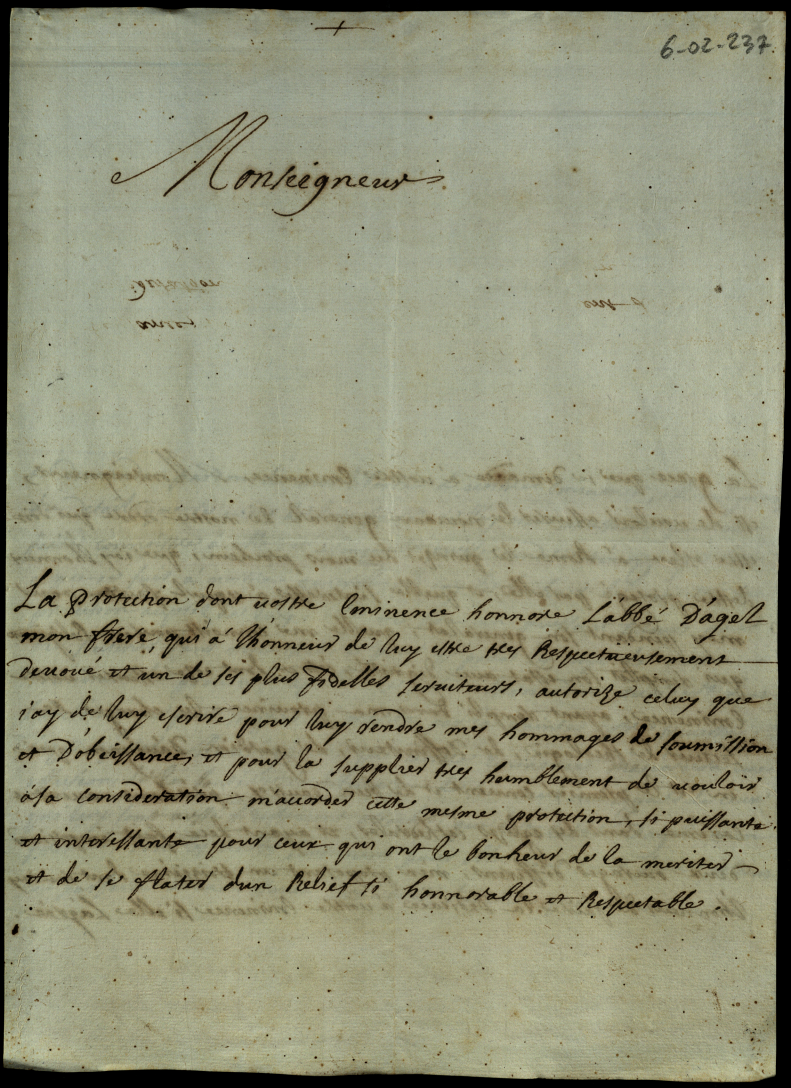 6-02-237.
Monseigneur
La protection dont vostre Eminence honnore L'abbé D'agel
mon frere qui à l'hónneur de luy estre tres Respectueusement
devoüé et un de ses plus fidelles serviteurs, autorize celuy que
j'ay de luy escrire pour luy rendre mes hommages de soumission
et D'obeissance, et pour la supplier tres humblement de vouloir
à sa consideration m'accorder cette mesme protection, si puissante
et interessante pour ceux qui ont le bonheur de la meriter
et de se flater d'un Relief si honnorable et Respectable.